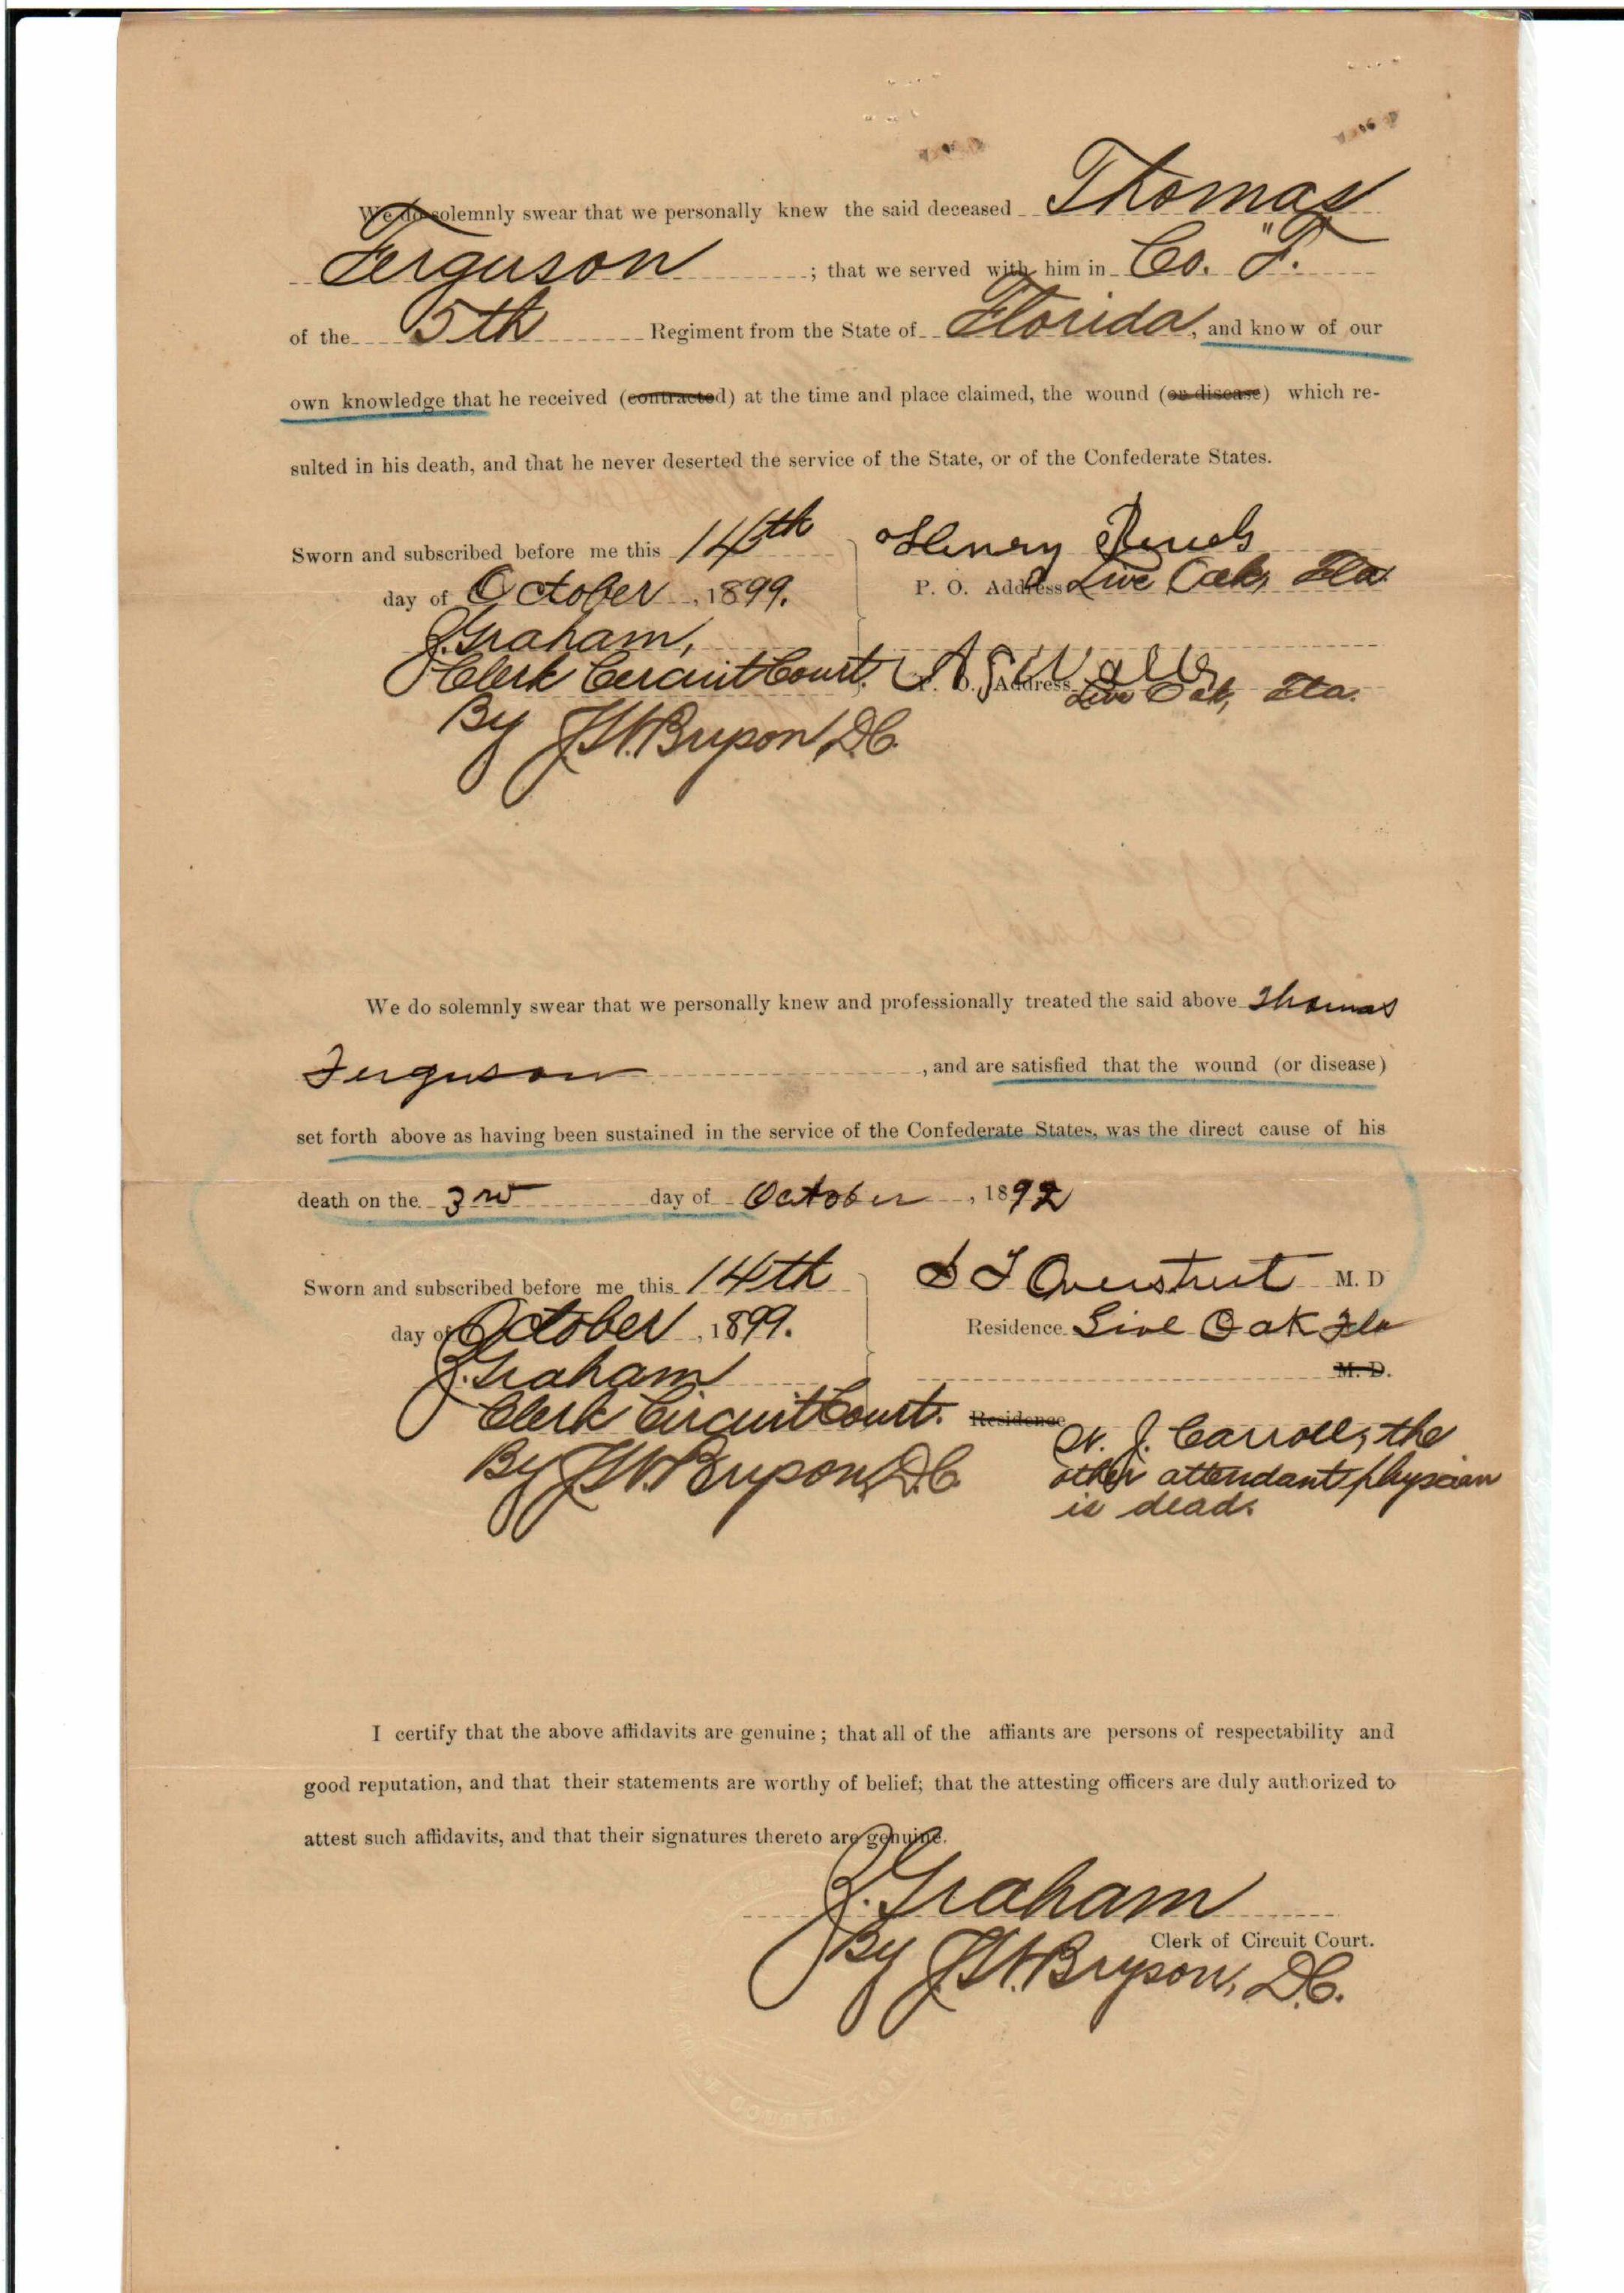 We do solemnly swear that we personally knew the said deceased Thomas
Ferguson ; that we served with him in Co. "F.
of the 5th Regiment from the State of Florida, and know of our
own knowledge that he received (contracted) at the time and place claimed, the wound (or disease) which re-
sulted in his death, and that he never deserted the service of the State, or of the Confederate States.
Sworn and subscribed before me this 14th
day of October, 1899.
J. Graham,
Clerk Circuit Court.
By J.W. Bryson, D.C.
Henry
P. O. Address Live Oak, Fla.
P. O. Address Live Oak, Fla.
We do solemnly swear that we personally knew and professionally treated the said above Thomas
Ferguson, and are satisfied that the wound (or disease)
set forth above as having been sustained in the service of the Confederate States, was the direct cause of his
death on the 3rd day of October, 1892
Sworn and subscribed before me this 14th
day of October, 1899.
J. Graham
Clerk Circuit Court.
By J.W. Bryson, D.C.
S T Overstreet M. D
Residence Live Oak Fla
M. D.
Residence
W. J. Carroll, the
other attendant physcian
is dead.
I certify that the above affidavits are genuine; that all of the affiants are persons of respectability and
good reputation, and that their statements are worthy of belief; that the attesting officers are duly authorized to
attest such affidavits, and that their signatures thereto are genuine.
J. Graham
Clerk of Circuit Court.
By J.W. Bryson, D.C.